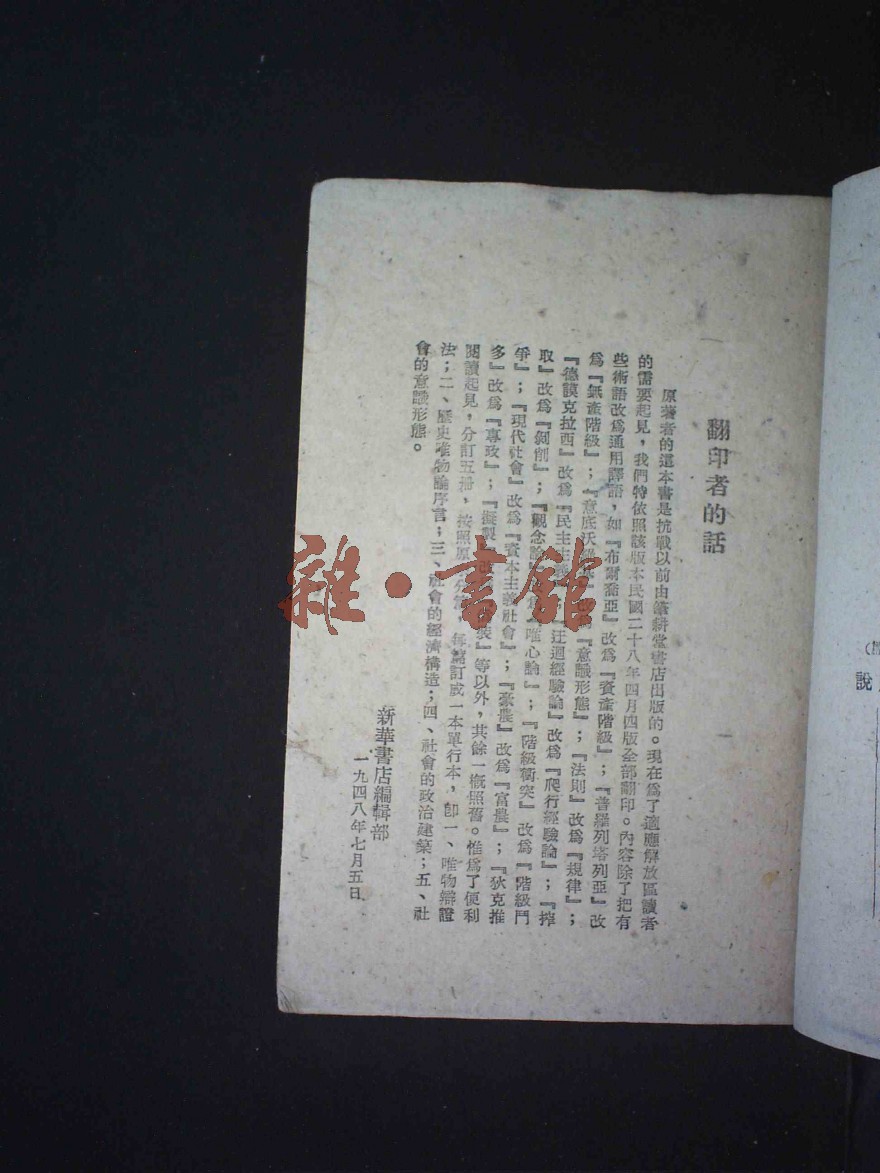 翻印者的話
原著者的這本書是抗戰以前由筆耕堂書店出版的。現在爲了適應解放區讀者
的需要起見，我們特依照該版本民國二十八年四月四版全部翻印。內容除了把有
些術語改爲通用譯語，如『布爾喬亞』改爲『資產階級』；『普羅列塔列亞』改
爲『無產階級』；『意底沃 』 爲『意識形態』；『法則』改爲『規律』；
『德謨克拉西』改爲『民主主 』；『迂迴經驗論』改爲『爬行經驗論』；『搾
取』改爲『剝削』；『觀念論』 爲『唯心論』；『階級衝突』改爲『階級鬥
爭』；『現代社會』改爲『資本主義社會』；『豪農』改爲『富農』；『狄克推
多』改爲『專政』；『擬製』 裝』等以外，其餘一概照舊。惟爲了便利
閱讀起見，分訂五册，按照原 分 ，每篇訂成一本單行本，卽一、唯物辯證
法；二、歷史唯物論序言；三、社會的經濟構造；四、社會的政治建築；五、社
會的意識形態。
新華書店編輯部
一九四八年七月五日
雜·書館
說